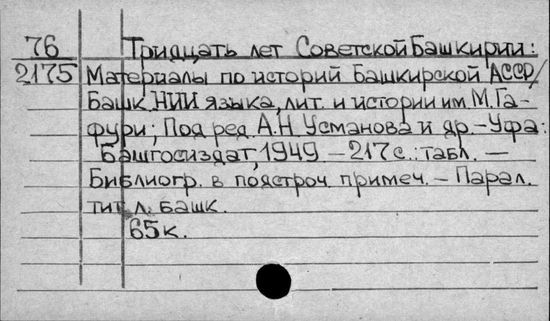 76 Тридцать лет Советской Башкирии:
2175 Материалы по историй Башкирской АССР/
Башк. НИИ языка, лит. и истории им. М. Га-
фури; Под ред. А.Н. Усманова и др. – Уфа:
Башгосиздат, 1949 – 217 с.: табл. –
Библиогр. в подстроч. примеч. – Парал.
тит. л. башк.
65к.